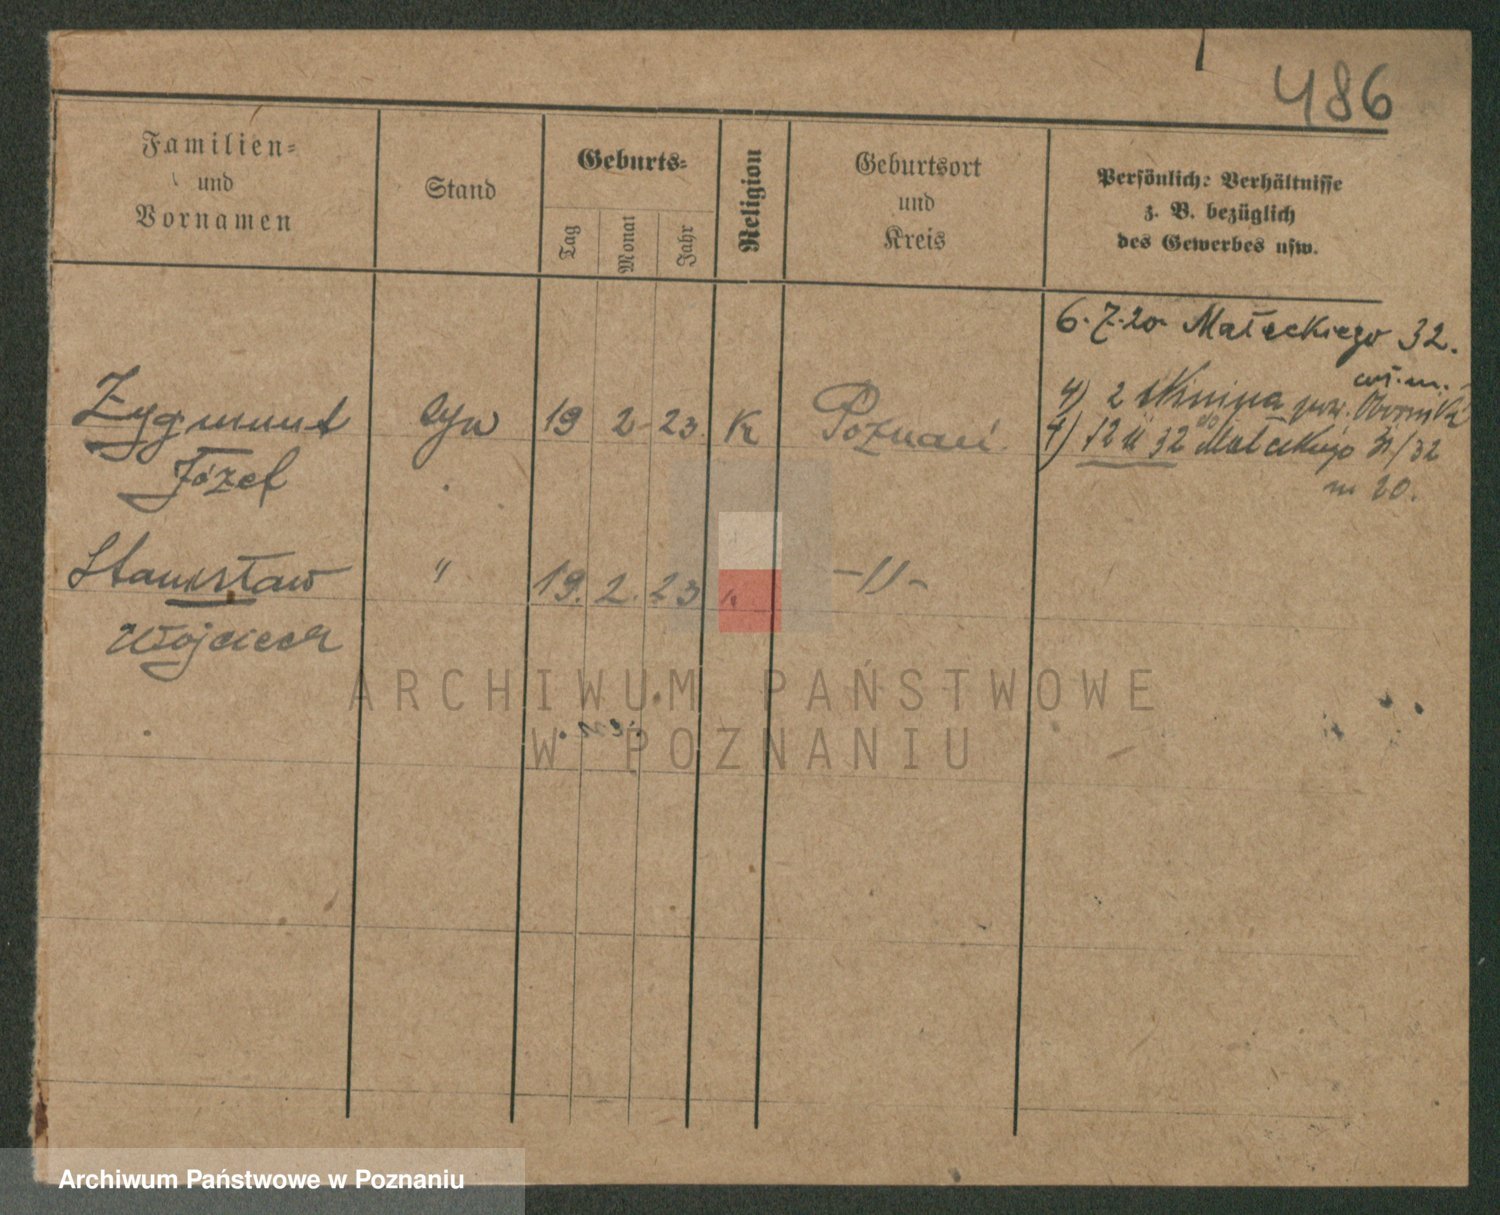 486
Familien-
und
Vornamen
Stand
Geburts-
Tag
Monat
Jahr
Religion
Geburtsort
und
Kreis
Persönliche Verhältnisse
z. B. bezüglich
des Gewerbes usw.
6.7.20. Małeckiego 32.
Zygmunt
Józef
syn
19 2 23. K
Poznań
4) 2 pow. Obornik
4) 12 II 32 Małeckiego 31/32
m 20.
Stanisław
Wojciech
"
19. 2. 23 "
-II-
ARCHIWUM PAŃSTWOWE
W POZNANIU
Archiwum Państwowe w Poznaniu